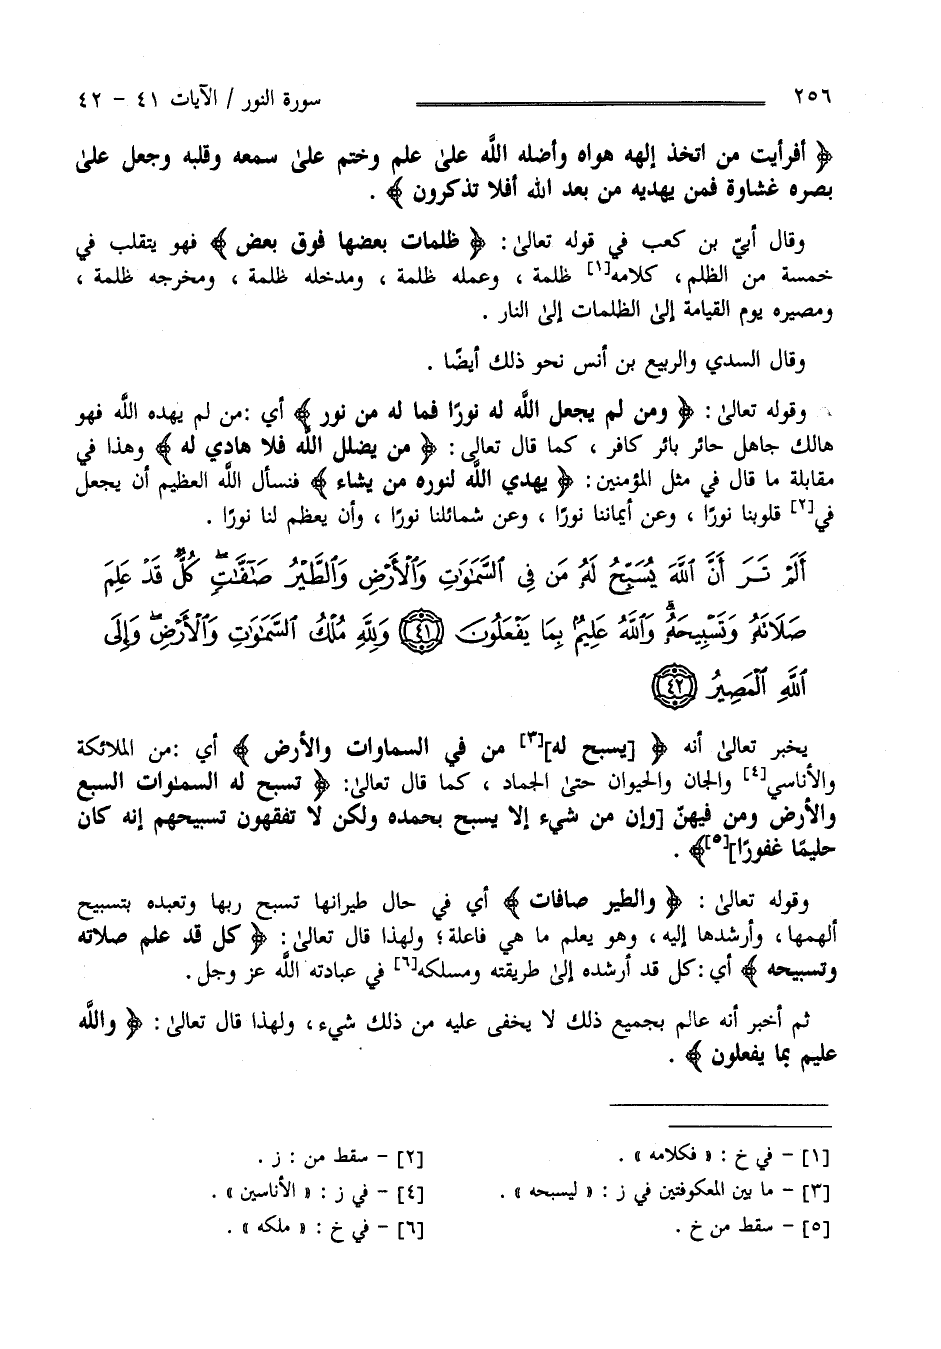 ٢٥٦ سورة النور / الآيات ٤١ - ٤٢
﴿ أفرأيت من اتخذ إلهه هواه وأضله اللَّه علىٰ علم وختم علىٰ سمعه وقلبه وجعل علىٰ
بصره غشاوة فمن يهديه من بعد الله أفلا تذكرون ﴾ .
وقال أبيّ بن كعب في قوله تعالىٰ : ﴿ ظلمات بعضها فوق بعض ﴾ فهو يتقلب في
خمسة من الظلم، كلامه[١] ظلمة ، وعمله ظلمة ، ومدخله ظلمة ، ومخرجه ظلمة ،
ومصيره يوم القيامة إلىٰ الظلمات إلىٰ النار .
وقال السدي والربيع بن أنس نحو ذلك أيضًا .
وقوله تعالىٰ : ﴿ ومن لم يجعل اللَّه له نورًا فما له من نور ﴾ أي :من لم يهده اللَّه فهو
هالك جاهل حائر بائر كافر ، كما قال تعالىٰ : ﴿ من يضلل اللَّه فلا هادي له ﴾ وهذا في
مقابلة ما قال في مثل المؤمنين: ﴿ يهدي اللَّه لنوره من يشاء ﴾ فنسأل اللَّه العظيم أن يجعل
في[٢] قلوبنا نورًا ، وعن أيماننا نورًا ، وعن شمائلنا نورًا ، وأن يعظم لنا نورًا .
أَلَمْ تَرَ أَنَّ ٱللَّهَ يُسَبِّحُ لَهُۥ مَن فِى ٱلسَّمَـٰوَٰتِ وَٱلْأَرْضِ وَٱلطَّيْرُ صَـٰٓفَّـٰتٍۖ كُلٌّ قَدْ عَلِمَ
صَلَاتَهُۥ وَتَسْبِيحَهُۥۗ وَٱللَّهُ عَلِيمٌۢ بِمَا يَفْعَلُونَ ٤١ وَلِلَّهِ مُلْكُ ٱلسَّمَـٰوَٰتِ وَٱلْأَرْضِۖ وَإِلَى
ٱللَّهِ ٱلْمَصِيرُ ٤٢
يخبر تعالىٰ أنه ﴿ [يسبح له][٣] من في السماوات والأرض ﴾ أي :من الملائكة
والأناسي[٤] والجان والحيوان حتىٰ الجماد ، كما قال تعالىٰ: ﴿ تسبح له السمٰوات السبع
والأرض ومن فيهنّ [وإن من شيء إلا يسبح بحمده ولكن لا تفقهون تسبيحهم إنه كان
حليمًا غفورًا][٥]﴾ .
وقوله تعالىٰ : ﴿ والطير صافات ﴾ أي في حال طيرانها تسبح ربها وتعبده بتسبيح
ألهمها، وأرشدها إليه، وهو يعلم ما هي فاعلة؛ ولهذا قال تعالىٰ: ﴿ كل قد علم صلاته
وتسبيحه ﴾ أي :كل قد أرشده إلىٰ طريقته ومسلكه[٦] في عبادته اللَّه عز وجل.
ثم أخبر أنه عالم بجميع ذلك لا يخفى عليه من ذلك شيء، ولهذا قال تعالىٰ: ﴿ واللَّه
عليم بما يفعلون ﴾ .
[١] - في خ : « فكلامه » . [٢] - سقط من : ز .
[٣] - ما بين المعكوفتين في ز : « ليسبحه » . [٤] - في ز : « الأناسين » .
[٥] - سقط من خ . [٦] - في خ : « ملكه » .